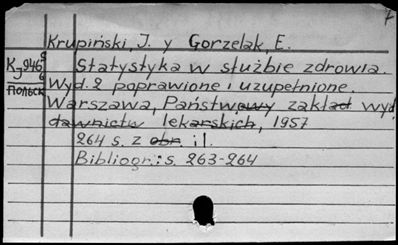 7
Krupiński, J. y Gorzelak, E.
K-9465 Statystyka w służbie zdrowia.
J 6 Wyd. 2 poprawione i uzupełnione.
Польск Warszawa, Państwowy zakład wyd
dawnictw lekarskich, 1957
264 s. z obr. il.
Bibliogr.: s. 263-264